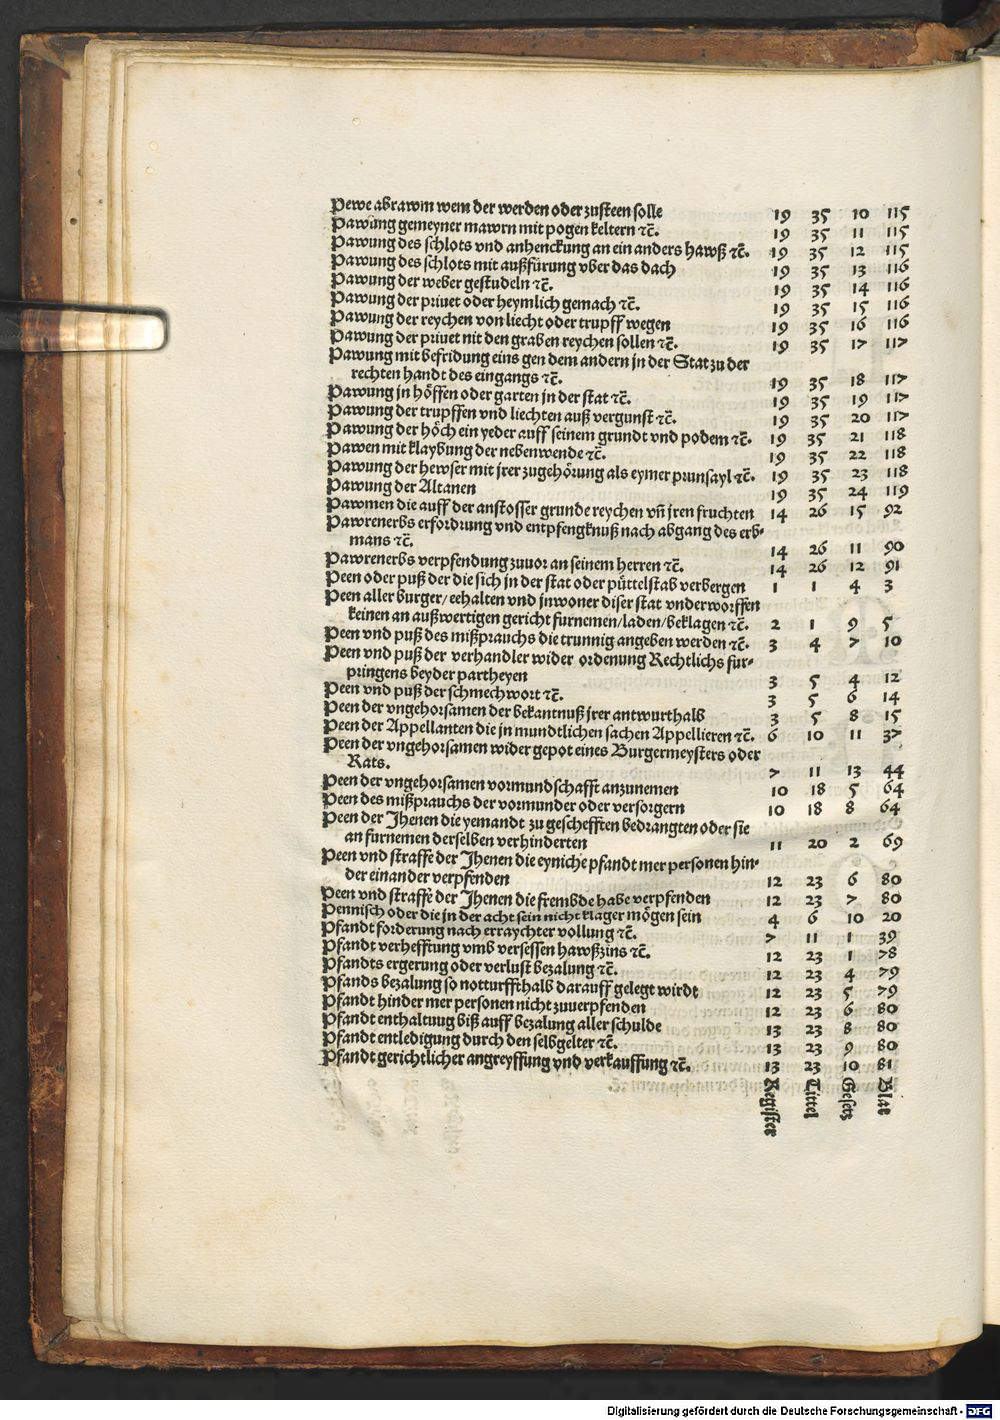 Pewe abrawm wem der werden oder zusteen solle 19 35 10 115
Pawung gemeyner mawrn mit pogen keltern ⁊c̄. 19 35 11 115
Pawung des schlots vnd anhenckung an ein anders hawß ⁊c̄. 19 35 12 115
Pawung des schlots mit außfürung vber das dach 19 35 13 116
Pawung der weber gestudeln ⁊c̄. 19 35 14 116
Pawung der priuet oder heymlich gemach ⁊c̄. 19 35 15 116
Pawung der reychen von liecht oder trupff wegen 19 35 16 116
Pawung der priuet nit den graben reychen sollen ⁊c̄. 19 35 17 117
Pawung mit befridung eins gen dem andern jn der Stat zu der
rechten handt des eingangs ⁊c̄. 19 35 18 117
Pawung jn höffen oder garten jn der stat ⁊c̄. 19 35 19 117
Pawung der trupffen vnd liechten auß vergunst ⁊c̄. 19 35 20 117
Pawung der höch ein yeder auff seinem grundt vnd podem ⁊c̄. 19 35 21 118
Pawen mit klaybung der nebenwende ⁊c̄. 19 35 22 118
Pawung der hewser mit jrer zugehörung als eymer prunsayl ⁊c̄. 19 35 23 118
Pawung der Altanen 19 35 24 119
Pawmen die auff der anstosser grunde reychen vn̄ jren fruchten 14 26 15 92
Pawrenerbs erfordrung vnd entpfengknuß nach abgang des erb⸗
mans ⁊c̄. 14 26 11 90
Pawrenerbs verpfendung zuuor an seinem herren ⁊c̄. 14 26 12 91
Peen oder puß der die sich jn der stat oder püttelstab verbergen 1 1 4 3
Peen aller burger/eehalten vnd jnwoner diser stat vnderworffen
keinen an außwertigen gericht furnemen/laden/beklagen ⁊c̄. 2 1 9 5
Peen vnd puß des mißprauchs die trunnig angeben werden ⁊c̄. 3 4 7 10
Peen vnd puß der verhandler wider ordenung Rechtlichs fur⸗
pringens beyder partheyen 3 5 4 12
Peen vnd puß der schmechwort ⁊c̄. 3 5 6 14
Peen der vngehorsamen der bekantnuß jrer antwurthalb 3 5 8 15
Peen der Appellanten die jn mundtlichen sachen Appellieren ⁊c̄. 6 10 11 37
Peen der vngehorsamen wider gepot eines Burgermeysters oder
Rats. 7 11 13 44
Peen der vngehorsamen vormundschafft anzunemen 10 18 5 64
Peen des mißprauchs der vormunder oder versorgern 10 18 8 64
Peen der Jhenen die yemandt zu geschefften bedrangten oder sie
an furnemen derselben verhinderten 11 20 2 69
Peen vnd straffe der Jhenen die eyniche pfandt mer personen hin⸗
der einander verpfenden 12 23 6 80
Peen vnd straffe der Jhenen die frembde habe verpfenden 12 23 7 80
Pennisch oder die jn der acht sein nicht klager mögen sein 4 6 10 20
Pfandt forderung nach erraychter vollung ⁊c̄. 7 11 1 39
Pfandt verhefftung vmb versessen hawßzins ⁊c̄. 12 23 1 78
Pfandts ergerung oder verlust bezalung ⁊c̄. 12 23 4 79
Pfands bezalung so notturffthalb darauff gelegt wirdt 12 23 5 79
Pfandt hinder mer personen nicht zuuerpfenden 12 23 6 80
Pfandt enthaltuug biß auff bezalung aller schulde 13 23 8 80
Pfandt entledigung durch den selbgelter ⁊c̄. 13 23 9 80
Pfandt gerichtlicher angreyffung vnd verkauffung ⁊c̄. 13 23 10 81
Register Tittel Gesetz Blat
Digitalisierung gefördert durch die Deutsche Forschungsgemeinschaft - DFG